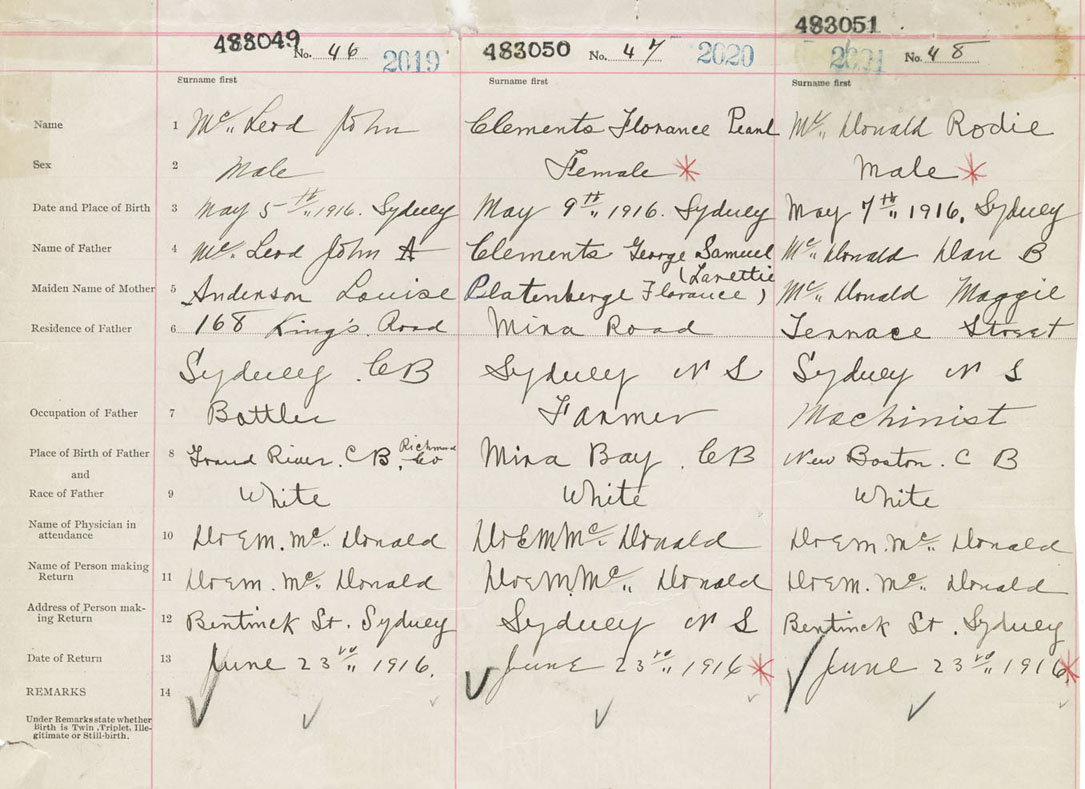 483049 No. 46 2019 483050 No. 47 2020 483051 No. 48
Surname first Surname first Surname first
Name 1 Mc Leod John Clements Florance Pearl Mc Donald Rodie
Sex 2 Male Female Male
Date and Place of Birth 3 May 5th 1916. Sydney May 9th 1916. Sydney May 7th 1916. Sydney
Name of Father 4 Mc Leod John A Clements George Samuel Mc Donald Dan B
Maiden Name of Mother 5 Anderson Louise Platenberge Florance (Larettie) Mc Donald Maggie
Residence of Father 6 168 King's Road Mira Road Terrace Street
Sydney. CB Sydney N S Sydney N S
Occupation of Father 7 Bottler Farmer Machinist
Place of Birth of Father 8 Grand River. C B. Richmond Co Mira Bay. CB New Boston. C B
and
Race of Father 9 White White White
Name of Physician in
attendance 10 Dr E M. Mc Donald Dr E M Mc Donald Dr E M. Mc Donald
Name of Person making
Return 11 Dr E M. Mc Donald Dr E M. Mc Donald Dr E M. Mc Donald
Address of Person mak-
ing Return 12 Bentinck St. Sydney Sydney N S Bentinck St. Sydney
Date of Return 13 June 23rd 1916. June 23rd 1916 June 23rd 1916.
REMARKS 14
Under Remarks state whether
Birth is Twin, Triplet, Ille-
gitimate or Still-birth.